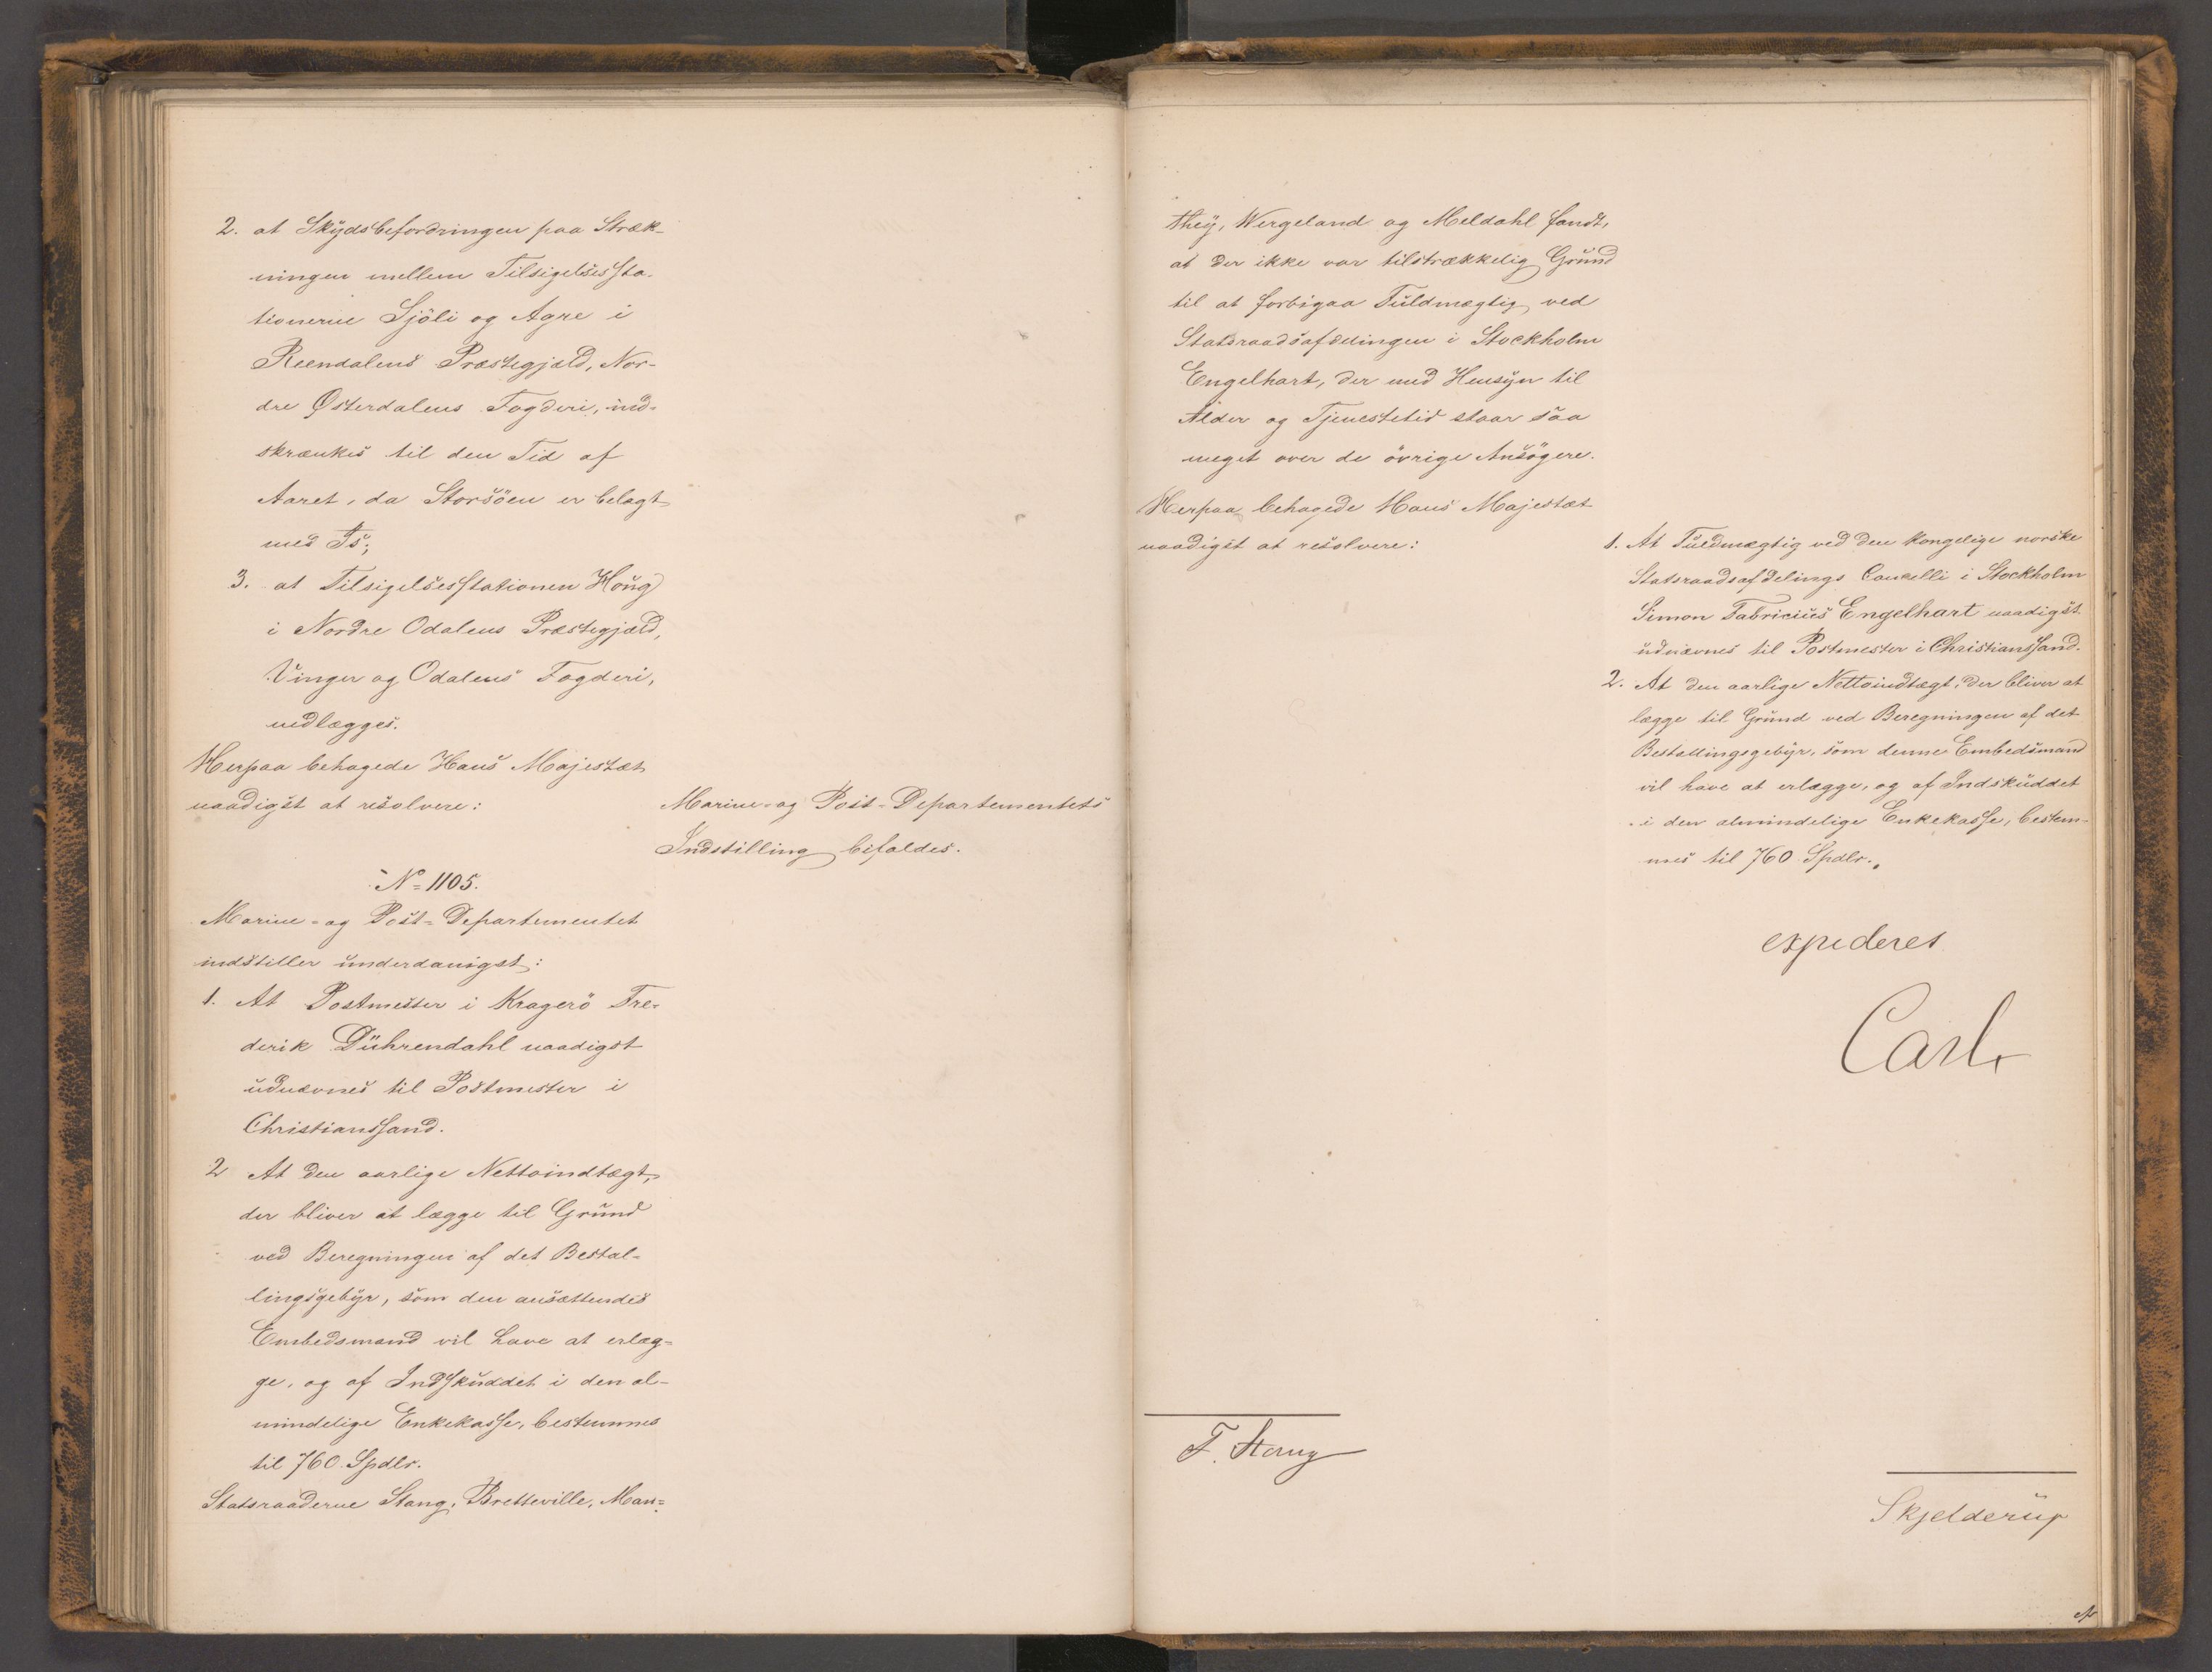 2. at Skydsbefordringen paa Stræk-
ningen mellem Tilsigelsessta-
tionerne Sjöli og Agre i
Reendalens Præstegjæld, Nor-
dre Østerdalens Fogderi, ind-
skrænkes til den Tid af
Aaret, da Storsöen er belagt
med Is;
3. at Tilsigelsesstationen Houg
i Nordre Odalens Præstegjæld,
Vinger og Odalens Fogderi,
nedlægges.
Herpaa behagede Hans Majestæt
naadigst at resolvere:
Marine- og Post-Departementets
Indstilling bifaldes.
No 1105.
Marine- og Post-Departementet
indstiller underdanigst:
1. At Postmester i Kragerö Fre-
derik Dührendahl naadigst
udnævnes til Postmester i
Christianssand.
2 At den aarlige Nettoindtægt,
der bliver at lægge til Grund
ved Beregningen af det Bestal-
lingsgebyr, som den ansættendes
Embedsmand vil have at erlæg-
ge, og af Indskuddet i den al-
mindelige Enkekasse, bestemmes
til 760 Spdlr.
Statsraaderne Stang, Bretteville, Man-
they, Wergeland og Meldahl fandt,
at der ikke var tilstrækkelig Grund
til at forbigaa Fuldmægtig ved
Statsraadsafdelingen i Stockholm
Engelhart, der med Hensyn til
Alder og Tjenestetid staar saa
meget over de övrige Ansögere.
Herpaa behagede Hans Majestæt
naadigst at resolvere:
1. At Fuldmægtig ved den kongelige norske
Statsraadsafdelings Cancelli i Stockholm
Simon Fabricius Engelhart naadigst
udnævnes til Postmester i Christianssand.
2. At den aarlige Nettoindtægt, der bliver at
lægge til Grund ved Beregningen af det
Bestallingsgebyr, som denne Embedsmand
vil have at erlægge, og af Indskuddet
i den almindelige Enkekasse, bestem-
mes til 760 Spdlr.
expederes
Carl
F. Stang
Skjelderup